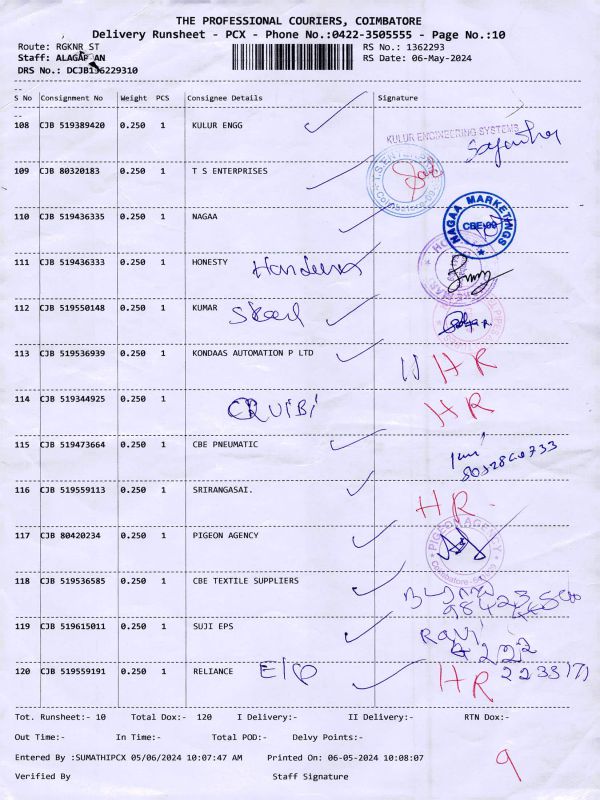 THE PROFESSIONAL COURIERS, COIMBATORE
Delivery Runsheet - PCX - Phone No.:0422-3505555 - Page No.:10
Route: RGKNR ST RS No.: 1362293
Staff: RS Date: 06-May-2024
DRS No.:
--
S No Consignment No Weight PCS Consignee Details Signature
--
108 CJB 519389420 0.250 1 KULUR ENGG
KULUR ENGINEERING SYSTEMS
109 CJB 80320183 0.250 1 T S ENTERPRISES
T.S. ENTERPRISES
110 CJB 519436335 0.250 1 NAGAA
NAGAA MARKETINGS
CBE
111 CJB 519436333 0.250 1 HONESTY
112 CJB 519550148 0.250 1 KUMAR Steel
113 CJB 519536939 0.250 1 KONDAAS AUTOMATION P LTD HR
114 CJB 519344925 0.250 1 QUIBI HR
115 CJB 519473664 0.250 1 CBE PNEUMATIC
116 CJB 519559113 0.250 1 SRIRANGASAI. HR
117 CJB 80420234 0.250 1 PIGEON AGENCY
PIGEON AGENCY
118 CJB 519536585 0.250 1 CBE TEXTILE SUPPLIERS
119 CJB 519615011 0.250 1 SUJI EPS Ravi
120 CJB 519559191 0.250 1 RELIANCE HR
Tot. Runsheet:- 10 Total Dox:- 120 I Delivery:- II Delivery:- RTN Dox:-
Out Time:- In Time:- Total POD:- Delvy Points:-
Entered By :SUMATHIPCX 05/06/2024 10:07:47 AM Printed On: 06-05-2024 10:08:07
9
Verified By Staff Signature